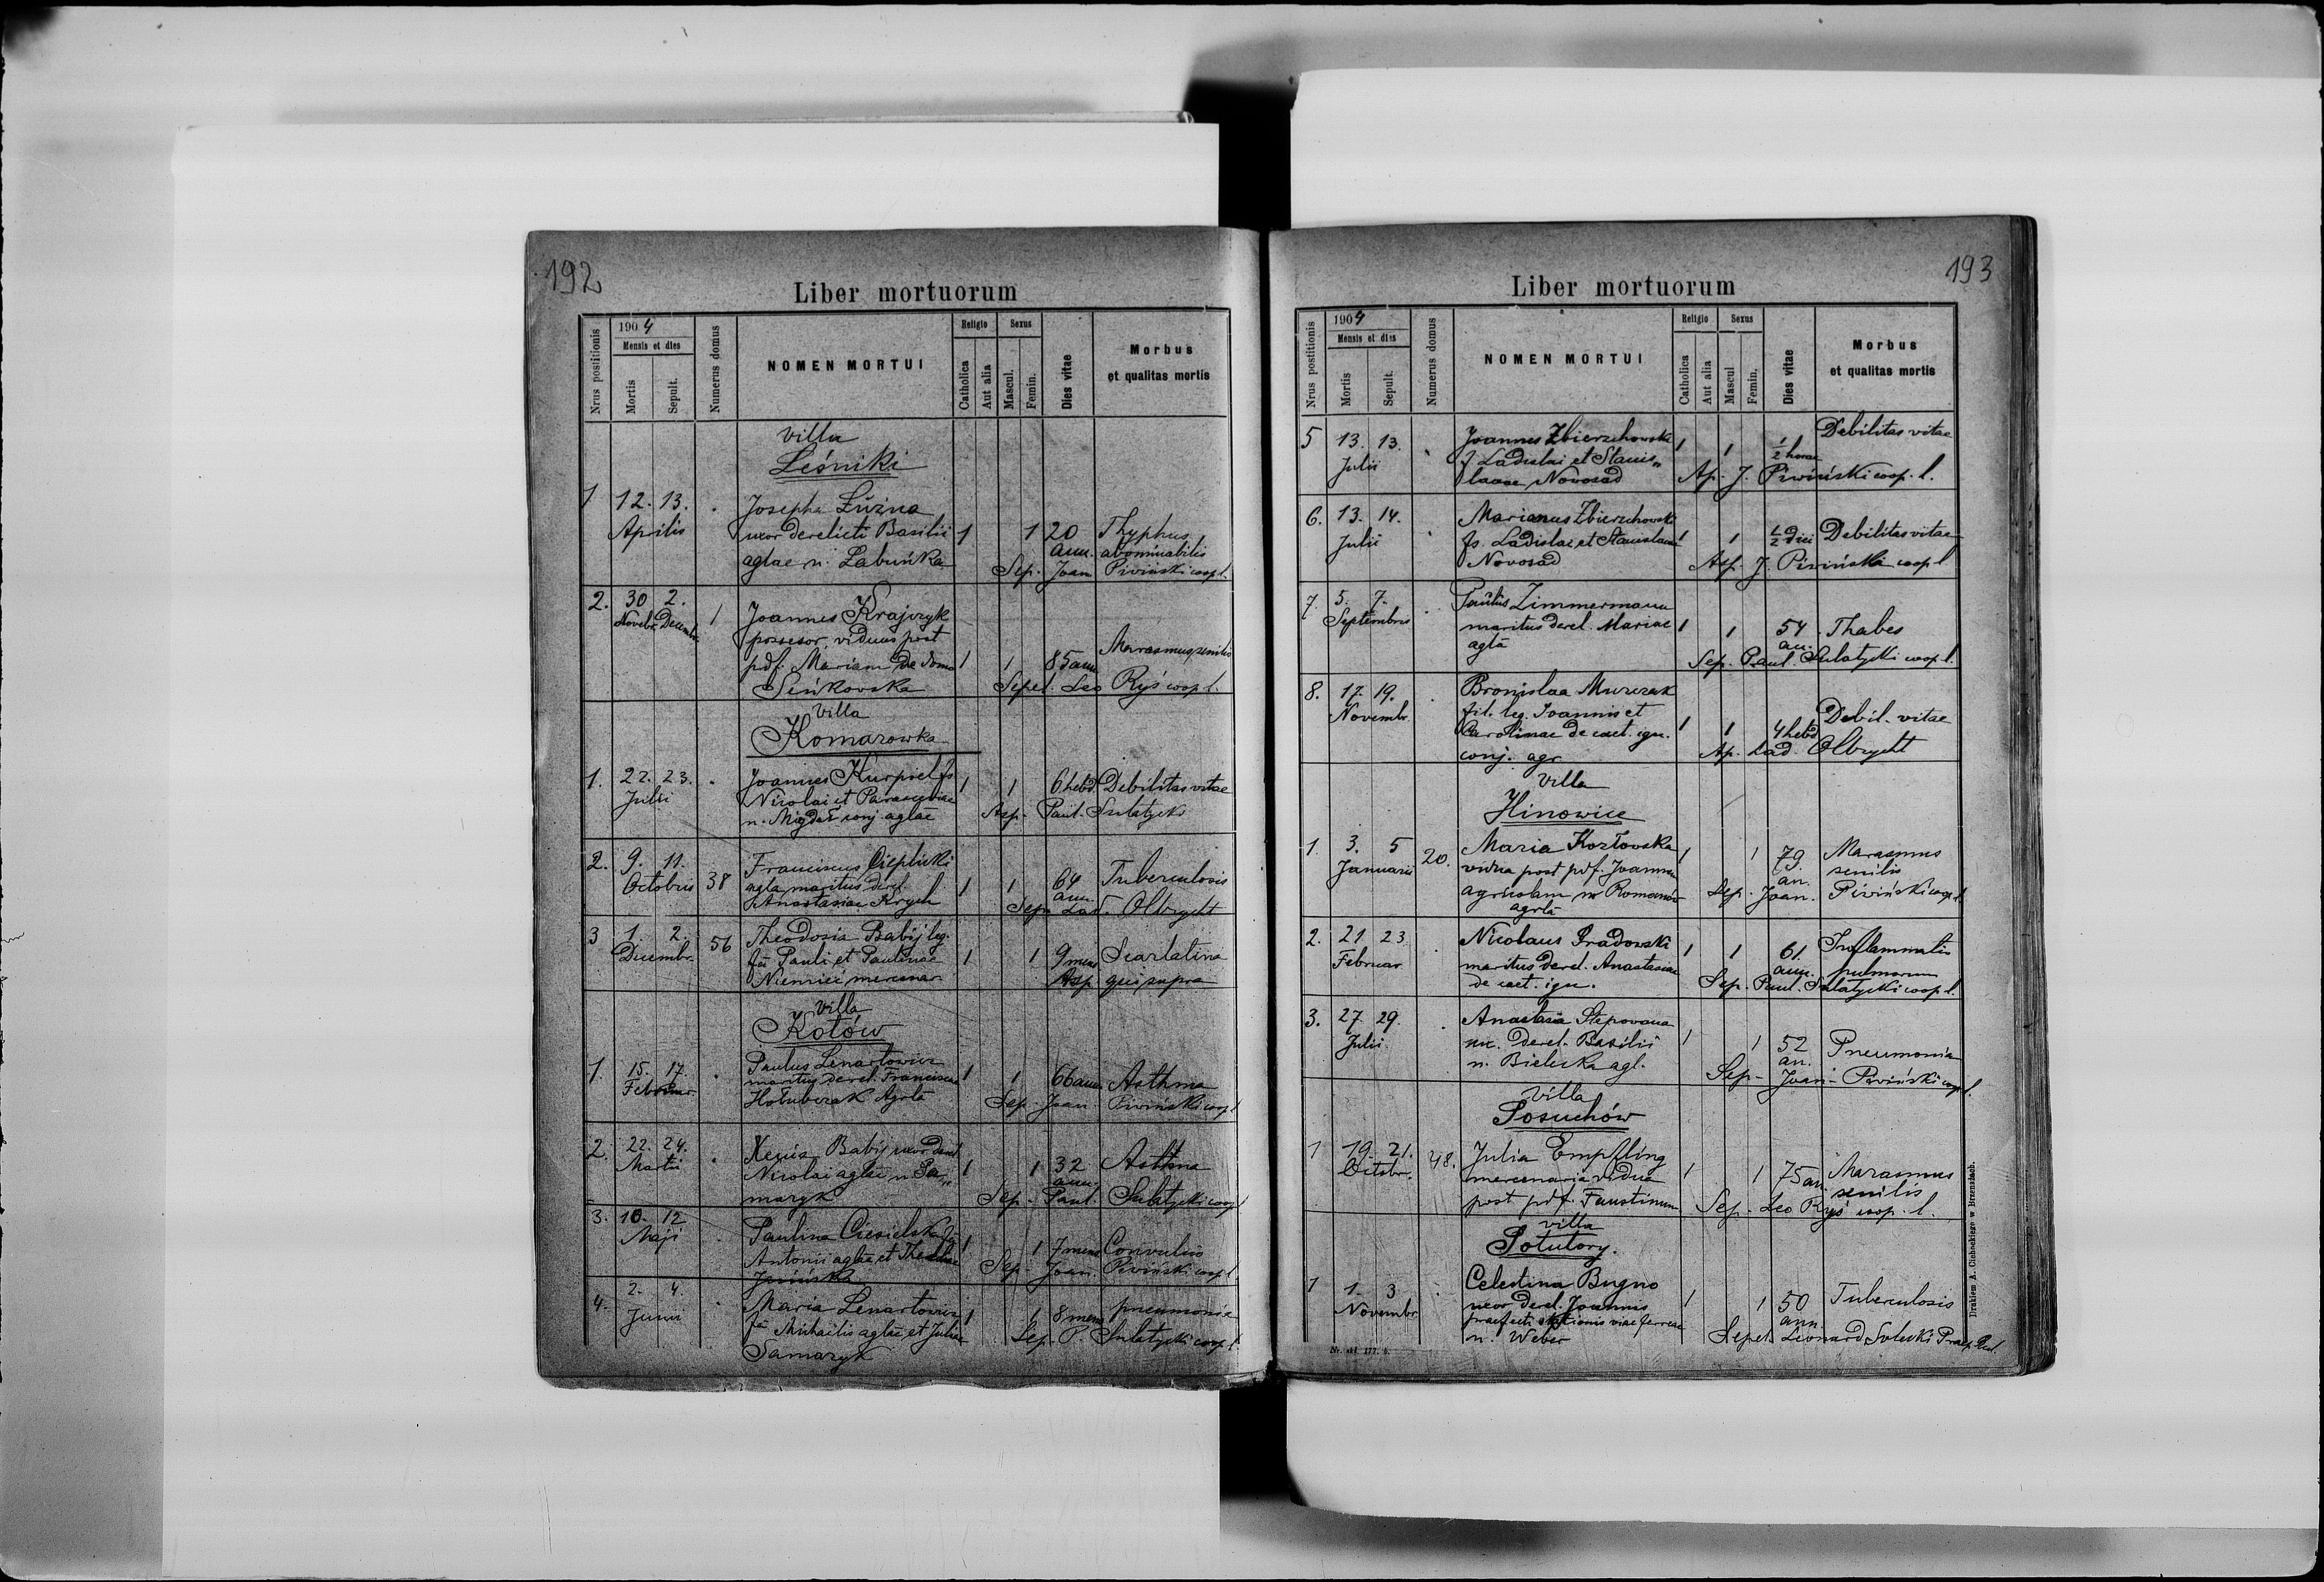 192
Liber mortuorum
Nrus postitionis
1904
Mensis et dies
Mortis
Sepult.
Numerus domus
NOMEN MORTUI
Religio
Catholica
Aut alia
Sexus
Mascul.
Femin.
Dies vitae
Morbus
et qualitas mortis
villa
Leśniki
1 12. 13. Josepha Łuźna
Aprilis uxor derelicti Basilii 1 1 20 Thyphus
aglae n. Łabuńka ann. abominabilis
Sep. Joan Piwiński coop. l.
2. 30 2. 1 Joannes Krajczyk
Novebr. Decembr. possesor, viduus post
pdf. Mariam de domo 1 1 85 ann Marasmus senilis
Seńkovska Sepel. Leo Ryś coop l.
villa
Komarowka
1. 22. 23. Joannes Kurpiel fs 1 1 6 hebd. Debilitas vitae
Julii Nicolai et Parasceviae
n. Migdał conj. aglae Asp. Paul. Sulatycki
2. 9. 11. 38 Franciscus Cieplicki
Octobris agla maritus derel. 1 1 64 Tuberculosis
Anastasiae Krych ann. Sep. Lad. Olbrycht
3 1. 2. 56 Theodosia Babij leg.
Decembr. fa Pauli et Paulinae 1 1 9 mens Scarlatina
mercenar Asp. qui supra
villa
Kotów
1. 15. 17. Paulus Lenartowicz
Februar. maritus derel. Franciscae 1 1 66 ann Asthma
Hołubczak Agrla Sep. Joan. Piwiński coop l
2. 22. 24. Xenia Babij uxor derel
Martii Nicolai aglae n. Sa= 1 1 32 Asthma
maryk ann. Sep. Paul. Sulatycki coop l
3. 10. 12 Paulina Ciesielska fa
Maji Antonii aglae et Theclae 1 1 7 mens Convulsio
Sep. Joan. Piwiński coop l
4. 2. 4. Maria Lenartowicz
Junii fa Michaelis aglae et Juliae 1 1 8 mens pneumonia
Samaryk Sep. P. Sulatycki coop. l.
193
Liber mortuorum
Nrus postitionis
1904
Mensis et dies
Mortis
Sepult.
Numerus domus
NOMEN MORTUI
Religio
Catholica
Aut alia
Sexus
Mascul
Femin.
Dies vitae
Morbus
et qualitas mortis
5 13. 13. Joannes Zbierzchowski 1 1 1/2 horae Debilitas vitae
Julii f. Ladislai et Stanis=
laae Novosad Ap. J. Piwiński coop. l.
6. 13. 14. Marianus Zbierzchowski
Julii fs. Ladislai et Stanislaae 1 1 1/2 diei Debilitas vitae
Novosad Asp. J. Piwiński coop l
7. 5. 7. Paulus Zimmermann
Septembris maritus derel. Mariae 1 1 54 Thabes
agla an. Sep. Paul. Sulatycki coop l.
8. 17. 19. Bronislaa Murczak
Novembr. fil. leg. Joannis et 1 1 4 hebd Debil. vitae
Carolinae de caet. ign.
conj. agr Ap. Lad. Olbrycht
villa
Hinowice
1. 3. 5 20. Maria Kozłovska 1 1 79. Marasmus
Januarii vidua post pdf. Joannem an. senilis
agricolam n. Romanów Sep. Joan. Piwiński coop l.
agrla
2. 21 23 Nicolaus Gradowski 1 1 61. Inflammatio
Februar maritus derel. Anastasiae ann. pulmonum
de caet. ign. Sep. Paul. Sulatycki coop l.
3. 27. 29. Anastasia Stepovana
Julii ux. derel. Basilii 1 1 52 Pneumonia
n. Bielecka agl. an. Sep. Joan. Piwiński coop l.
villa
Posuchów
1 19. 21. 48. Julia Empfling
Octobr. mercenaria vidua 1 1 75 an. Marasmus
post pdf. Faustinum senilis
Sep. Leo Ryś coop. l.
villa
Potutory.
1 1. 3 Celestina Bugno
Novembr. uxor derel. Joannis 1 1 50 Tuberculosis
praefecti stationis viae ferreae ann.
n. Weber Sepel. Leonard Solecki
Nr. skł. 177. b.
Drukiem A. Cichockiego w Brzeżanach.